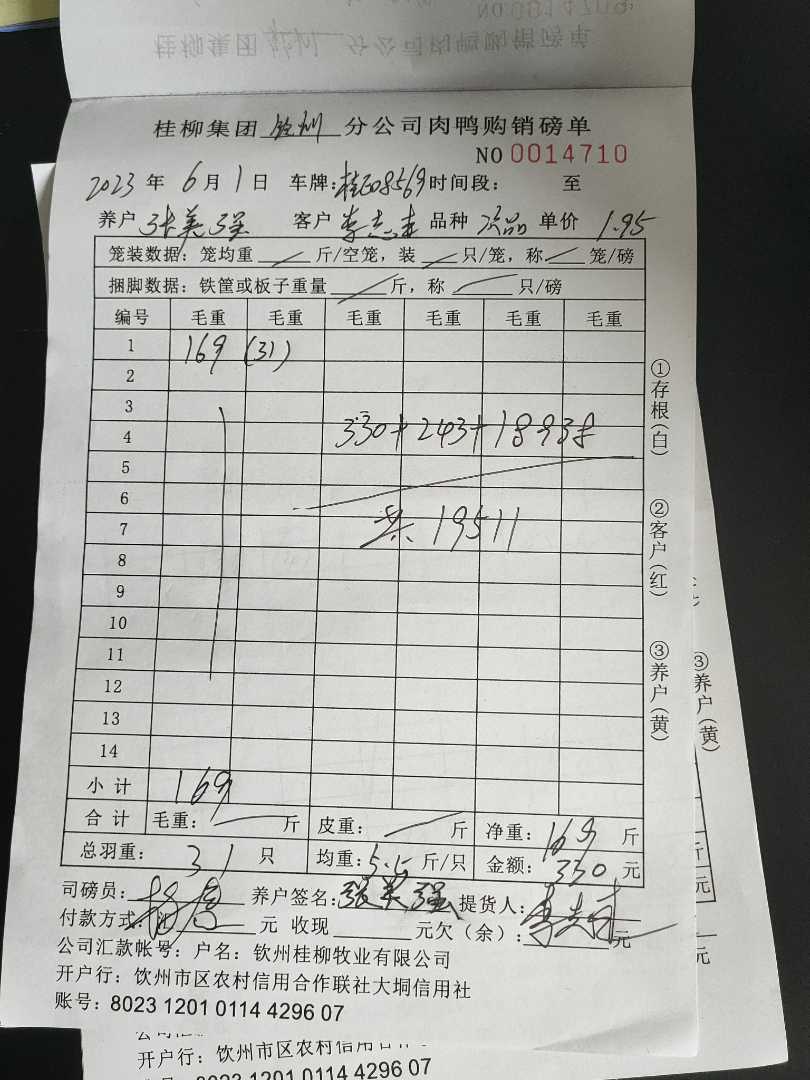 桂柳集团 钦州 分公司肉鸭购销磅单
NO 0014710
2023 年 6 月 1 日 车牌:桂 08569 时间段: 至
养户 张美强 客户 李志 品种 次品 单价 1.95
笼装数据:笼均重 斤/空笼,装 只/笼,称 笼/磅
捆脚数据:铁筐或板子重量 斤,称 只/磅
编号 毛重 毛重 毛重 毛重 毛重 毛重
1 169 (31)
2
3
4 330+243+18938
5
6
7 共 19511
8
9
10
11
12
13
14
小计 169
合计 毛重: 斤 皮重: 斤 净重: 169 斤
总羽重: 31 只 均重: 5.5 斤/只 金额: 330 元
司磅员: 养户签名: 张美强 提货人: 李志
付款方式: 元 收现 元欠(余): 元
公司汇款帐号:户名:钦州桂柳牧业有限公司
开户行:饮州市区农村信用合作联社大垌信用社
账号:8023 1201 0114 4296 07
①存根(白)
②客户(红)
③养户(黄)
③养户(黄)
斤
元
元
开户行:饮州市区农村信用合作
账号:8023 1201 0114 4296 07
桂柳集团 钦州 分公司肉鸭购销磅单
NO 0014709